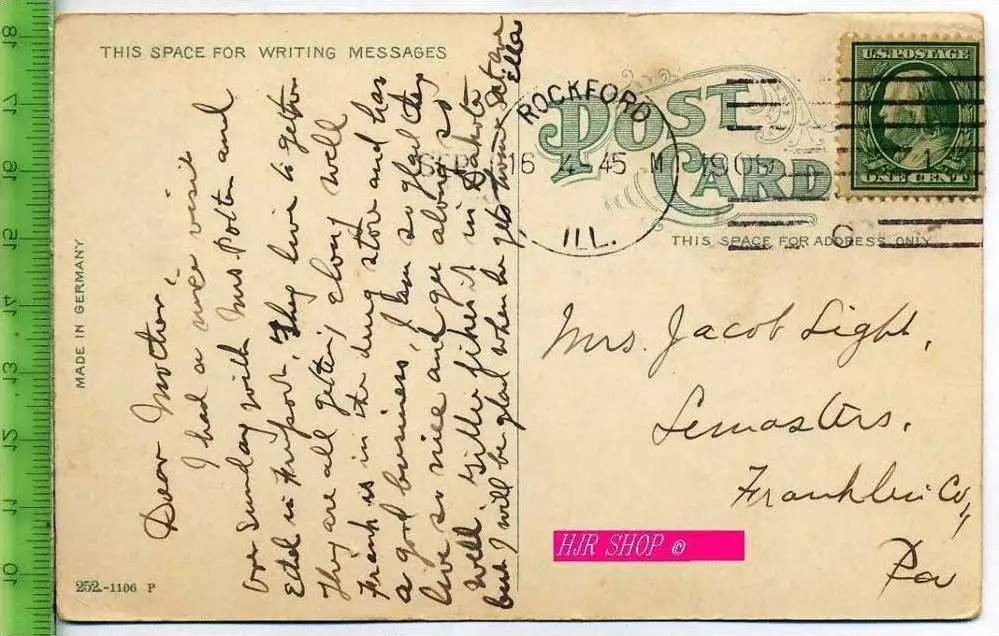 THIS SPACE FOR WRITING MESSAGES
Dear Mother;
I had a nice visit
over Sunday with Mrs Potter and
Ethel in Freeport. They live together
They are all getting along well
Frank is in the drug store and has
a good business, I am so glad they
live so nice and get along so
well. Willie likes it in Dakota
but I will be glad when he gets home
Ella
MADE IN GERMANY
252.-1106 P
POST CARD
THIS SPACE FOR ADDRESS ONLY
ROCKFORD
SEP 16 4-45 M
ILL.
U.S. POSTAGE
1
ONE CENT
Mrs. Jacob Light,
Lemasters.
Franklin Co,
Pa
HJR SHOP ©
18
17
16
15
14
13
12
11
10